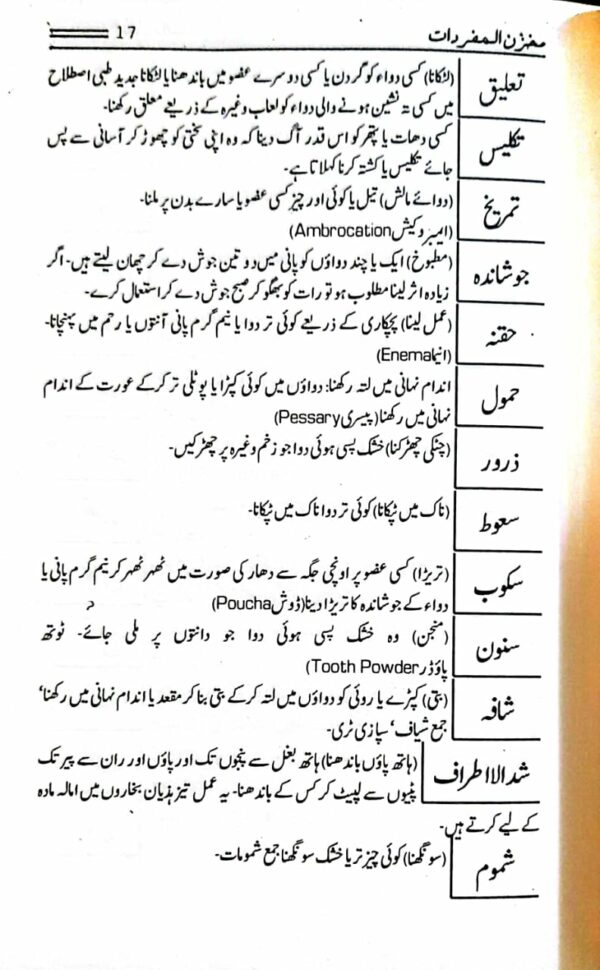 مخزن المفردات 17
تعلیق (لٹکانا) کسی دواء کو گردن یا کسی دوسرے عضو میں باندھنا یا لٹکانا جدید طبی اصطلاح
میں کسی تہ نشین ہونے والی دواء کو لعاب وغیرہ کے ذریعے معلق رکھنا۔
تکلیس کسی دھات یا پتھر کو اس قدر آگ دینا کہ وہ اپنی سختی کو چھوڑ کر آسانی سے پس
جائے تکلیس یا کشتہ کرنا کہلاتا ہے۔
تمریخ (دوائے مالش) تیل یا کوئی اور چیز کسی عضو یا سارے بدن پر ملنا۔
(ایمبروکیشن Ambrocation)
جوشاندہ (مطبوخ) ایک یا چند دواؤں کو پانی میں دو تین جوش دے کر چھان لیتے ہیں۔ اگر
زیادہ اثر لینا مطلوب ہو تو رات کو بھگو کر صبح جوش دے کر استعمال کرے۔
حقنہ (عمل لینا) پچکاری کے ذریعے کوئی تر دوا یا نیم گرم پانی آنتوں یا رحم میں پہنچانا۔
(انیما Enema)
حمول اندام نہانی میں لتہ رکھنا: دواؤں میں کوئی کپڑا یا پوٹلی تر کرکے عورت کے اندام
نہانی میں رکھنا (پیسری Pessary)
ذرور (چٹکی چھڑکنا) خشک پسی ہوئی دوا جو زخم وغیرہ پر چھڑکیں۔
سعوط (ناک میں ٹپکانا) کوئی تر دوا ناک میں ٹپکانا۔
سکوب (تریڑا) کسی عضو پر اونچی جگہ سے دھار کی صورت میں ٹھہر ٹھہر کر نیم گرم پانی یا
دواء کے جوشاندہ کا تریڑا دینا (ڈوش Poucha)
سنون (منجن) وہ خشک پسی ہوئی دوا جو دانتوں پر ملی جائے۔ ٹوتھ
پاؤڈر Tooth Powder)
شافہ (بتی) کپڑے یا روئی کو دواؤں میں لتہ کرکے بتی بنا کر مقعد یا اندام نہانی میں رکھنا‘
جمع شیاف‘ سپازی ٹری۔
شدالااطراف (ہاتھ پاؤں باندھنا) ہاتھ بغل سے پنجوں تک اور پاؤں اور ران سے پیر تک
پٹیوں سے لپیٹ کر کس کے باندھنا۔ یہ عمل تیز ہذیان بخاروں میں امالہ مادہ
کے لیے کرتے ہیں۔
شموم (سونگھنا) کوئی چیز تر یا خشک سونگھنا جمع شمومات۔